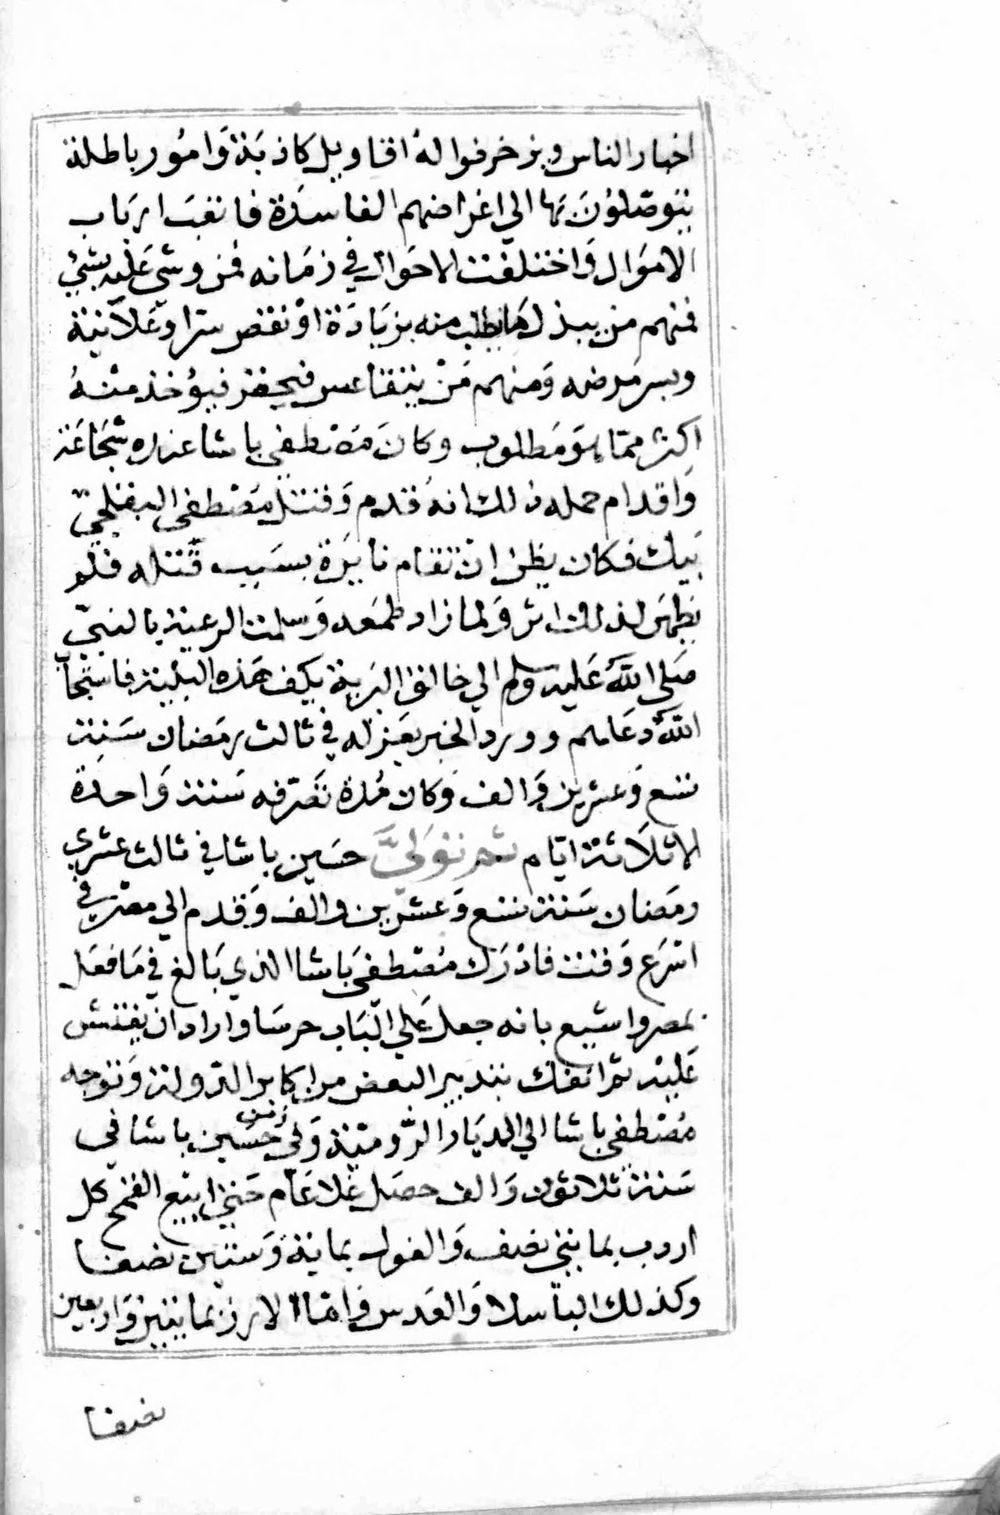 اخبار الناس ويزخرفوا له اقاويل كاذبة وَامُور باطلة
يتوصّلوُنَ بها الي اغراضهم الفاسدَة فانعَبَ ارباب
الاموَال وَاختلفت الاحوَال في زمَانه فمن وشي عَليْه بشئ
فمنهم من يبذل مَا يطلب منه بزيَادَة اوْ نقص سرّا وعَلاَنية
وبسر مرضه وَمنهم مَنْ يتقاعس فيحضر فيؤخذ منْهُ
اكثر ممّا هوَ مَطلوب وكانَ مَصْطفي باشا عنده شجَاعَة
وَاقدام جمله ذلك انهُ قدم وَقتل مصْطفي البقلجيّ
بَيك فكان يظن ان تقام نايرَة بسَبب قتله فلم
يظهَر لذلك اثر وَلما زاد طمَعه وَسلمت الرعية بالنبيّ
صَلي اللّه عَليْه وسلم الي خالق البَرية يكف هَذه البلية فاستجَابَ
اللّهُ دعَاهم وورد الخبر بعَزله في ثالث رمَضان سَنة
تسع وَعشرين وَالف وَكان مُدة تصَرّفه سَنة وَاحدَة
الا ثلاَثة ايّام ثمر توَليَّ حسَين باشا في ثالث عشري
رمَضان سَنة تسع وَعشرين والف وَقدم الي مصْر في
اسْرَع وَقت فادْرَك مُصْطفيَ باشا الذي بَالغ في مَا فعَل
بمصر واشيع بانه جعل عَلي البَاب حرسَا واراد ان يفتش
عَليْه ثم انفك بتدبير البعض من اكابر الدولة وَتوجه
مُصْطفي باشا الي الديَار الرّوميّة وَفي زمن حسَين باشا في
سَنة ثلاثون وَالف حصَل غلاعَام حَتي ابيع القمح كل
اردب بمايتي نصف وَالفول بماية وَستين نصفا
وكذلك البَاسلا وَالعَدس وَامّا الارز بمايتين وَاربعين
نصفا